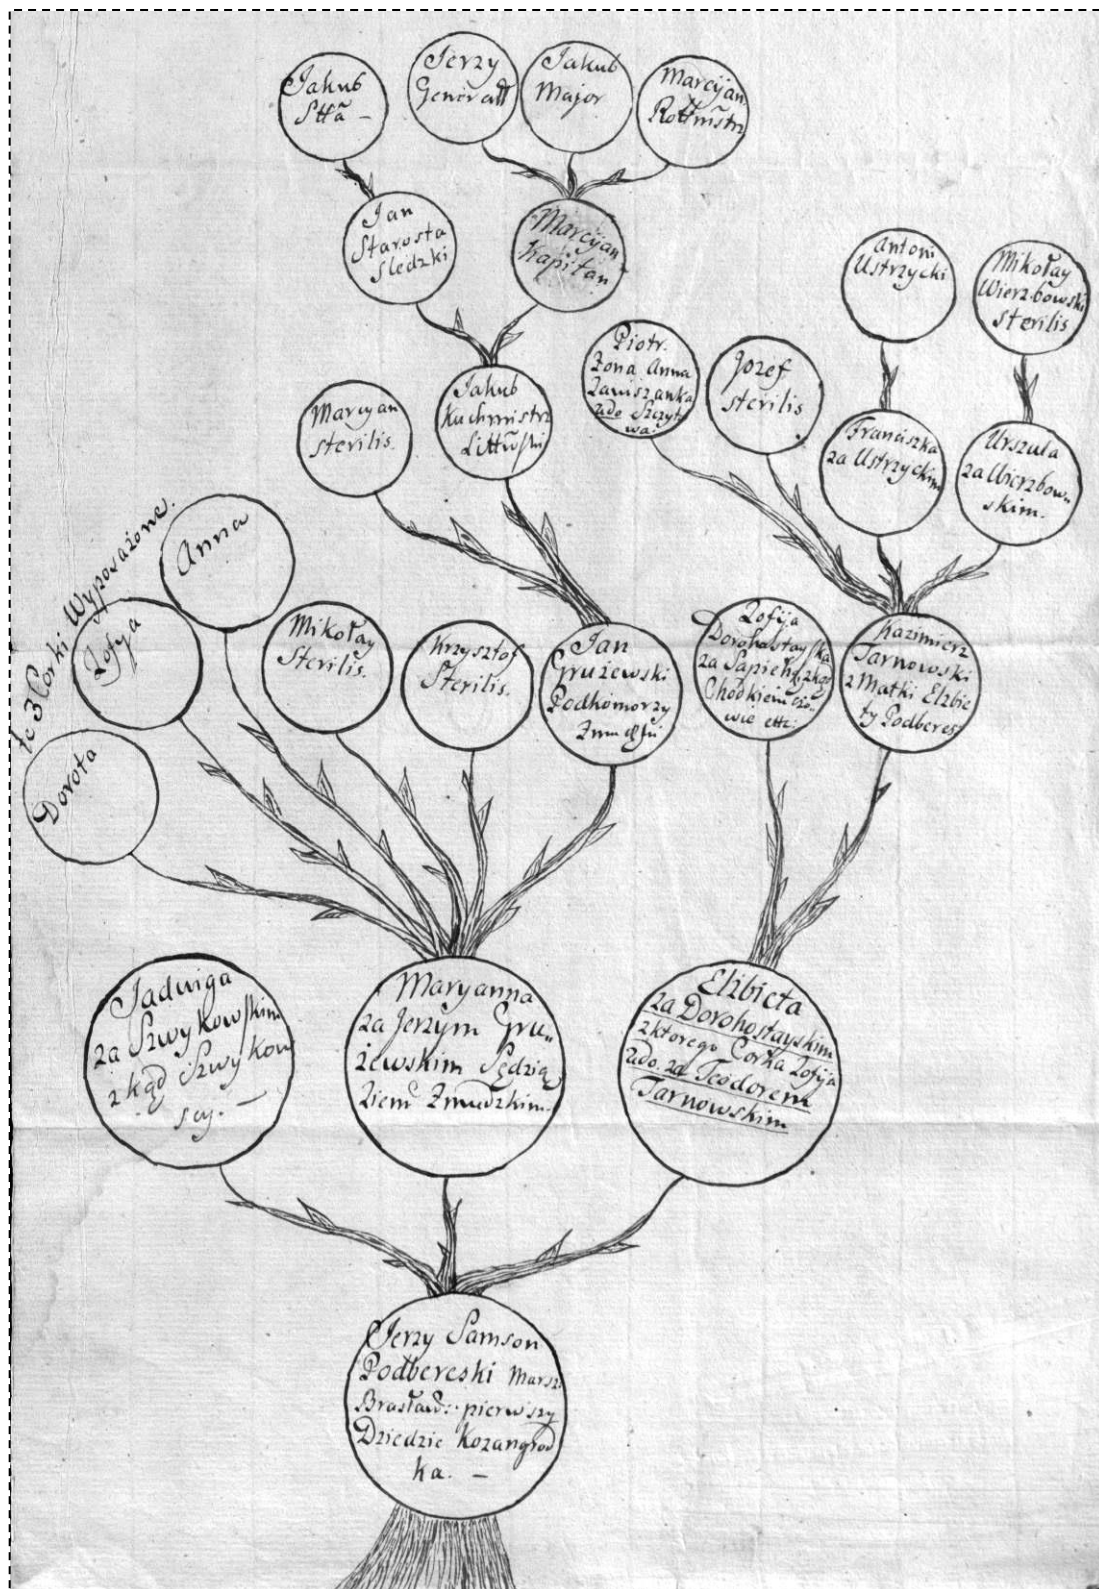 Jakub
Sttã –
Jerzy
Generał
Jakub
Major
Marcyjan
Rottmistrz
Jan
Starosta
Sledzki
Marcyjan
Kapitan
Antoni
Ustrzycki
Mikołay
Wierzbowski
sterilis
Piotr.
Żona Anna
Zawiszanka
2do Szczyt
wa.
Jozef
sterilis
Marcyan
sterilis.
Jakub
Kuchmistrz
Littwski
Franciszka
za Ustrzyckim
Urszula
za Wierzbow„
skim.
te 3 Corki Wyposażone.
Anna
Zofya
Dorota
Mikołay
Sterilis.
Krzysztof
Sterilis.
Jan
Grużewski
Podkomorzy
Zofija
Dorohostayska
za Sapiehą, 2do
Chodkiewiczo„
wie ettc:
Kazimierz
Tarnowski
z Matki Elzbie
ty Podberes
Jadwiga
za Szwykowskim
zkąd Szwykow
scy. –
Maryanna
za Jerzym Gru„
żewskim Sędzią
Ziem Zmudzkim.
Elzbieta
za Dorohostayskim
z ktorego Corka Zofija
2do. za Teodorem
Tarnowskim
Jerzy Samson
Podbereski Marsz:
Brasław: pierwszy
Dziedzic Kozangrod
ka. –